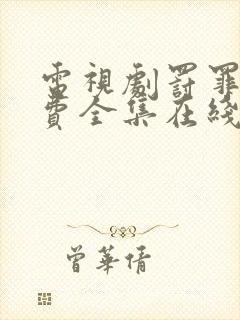 電視劇罰罪
費全集在綫
曾華倩